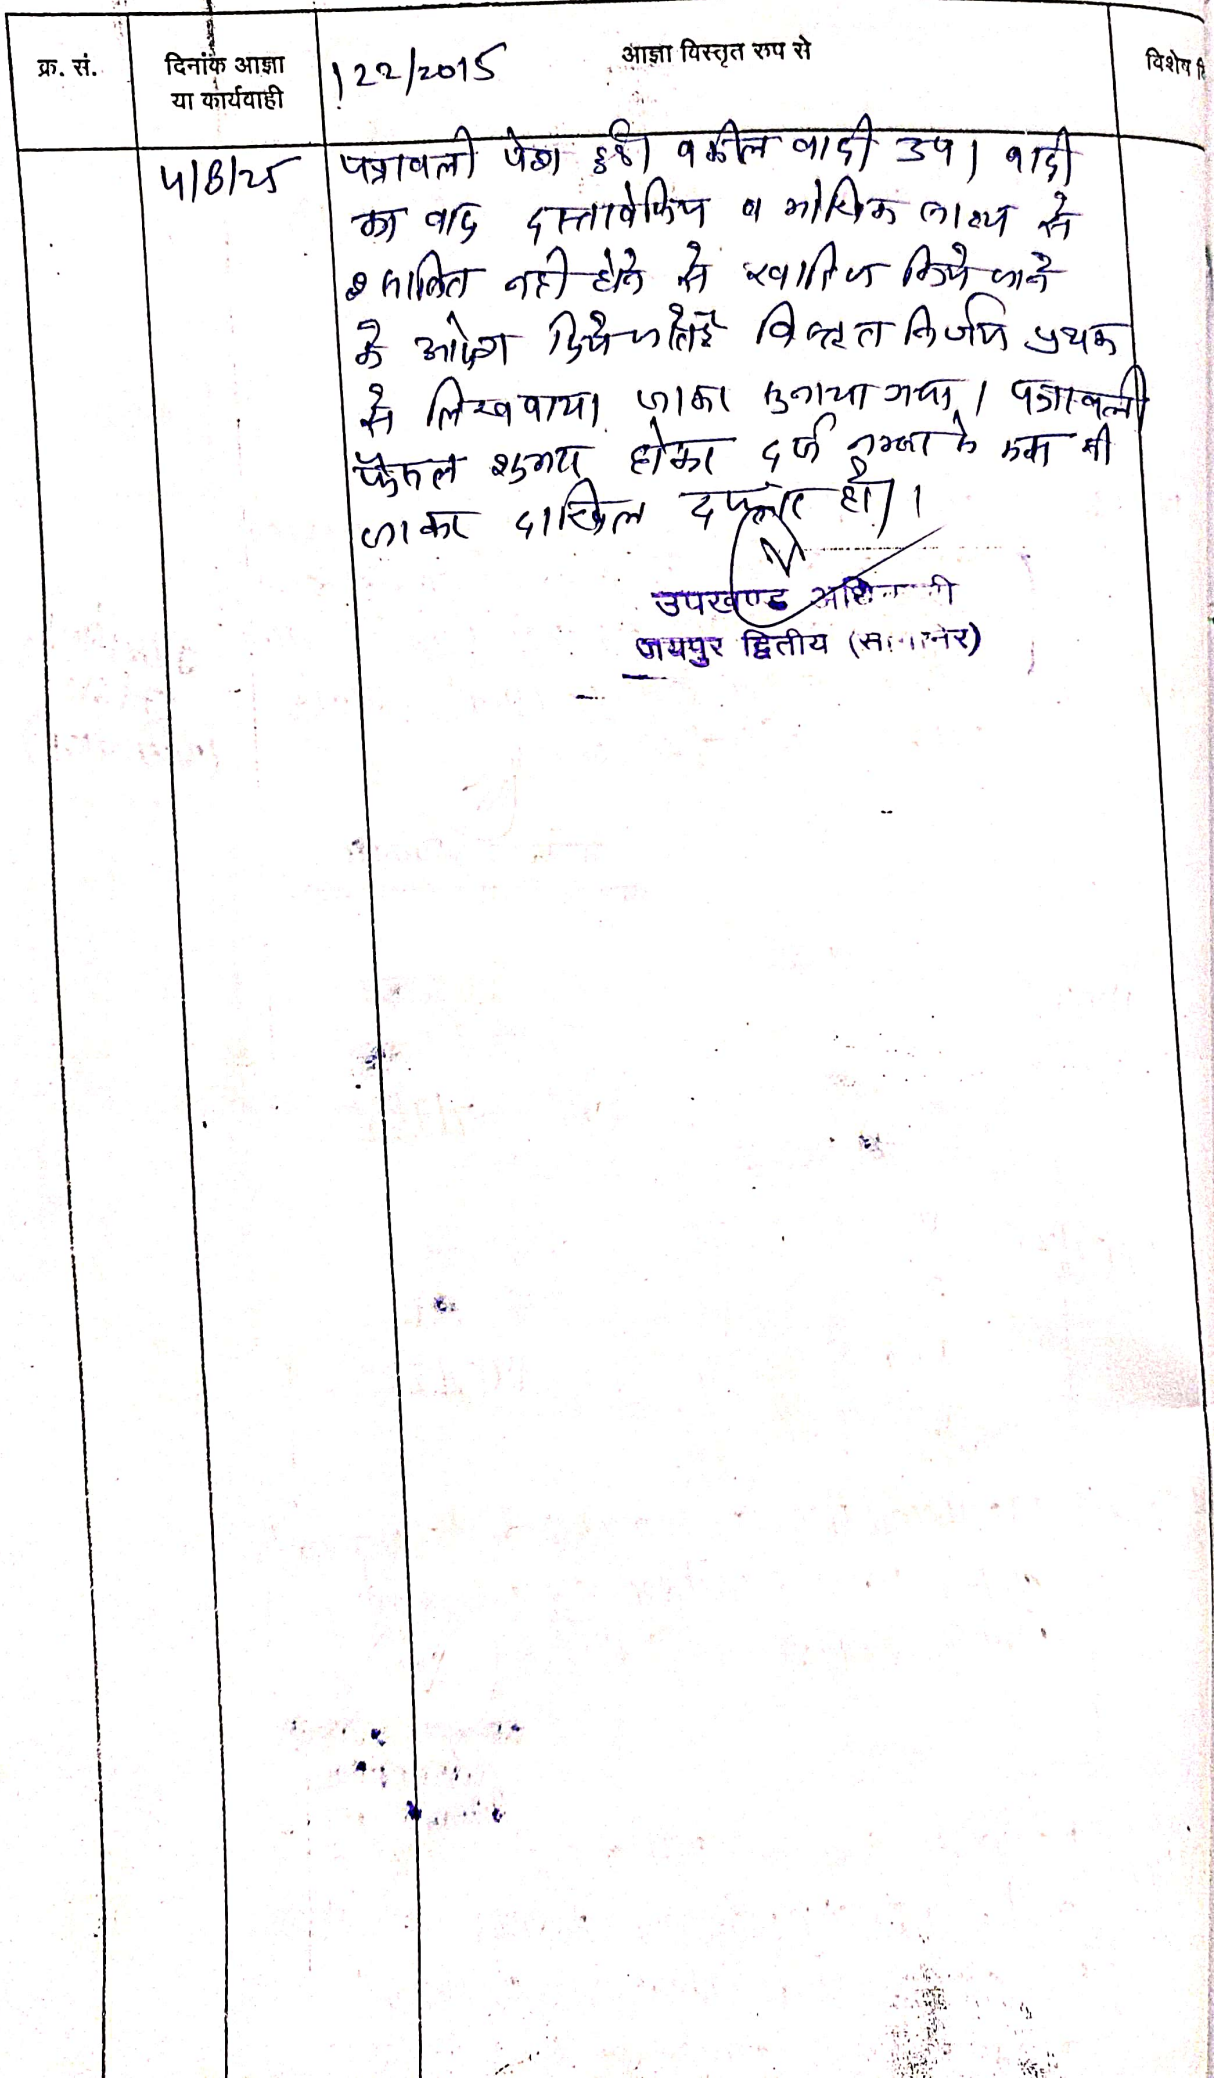 क्र. सं.
दिनांक आज्ञा
या कार्यवाही
122/2015
आज्ञा विस्तृत रुप से
विशेष
4/8/25
पत्रावली पेश हुई। वकील वादी उप। वादी
का वाद दस्तावेजिय व मौखिक साक्ष्य से
साबित नही होने से खारिज किये जाने
के आदेश दिये जाते है विस्तृत निर्णय पृथक
से लिखवाया जाकर सुनाया गया। पत्रावली
फैसल शुमार होकर दर्ज नम्बर से कम की
जाकर दाखिल दफ्तर हो।
उपखण्ड अधिकारी
जयपुर द्वितीय (सांगानेर)